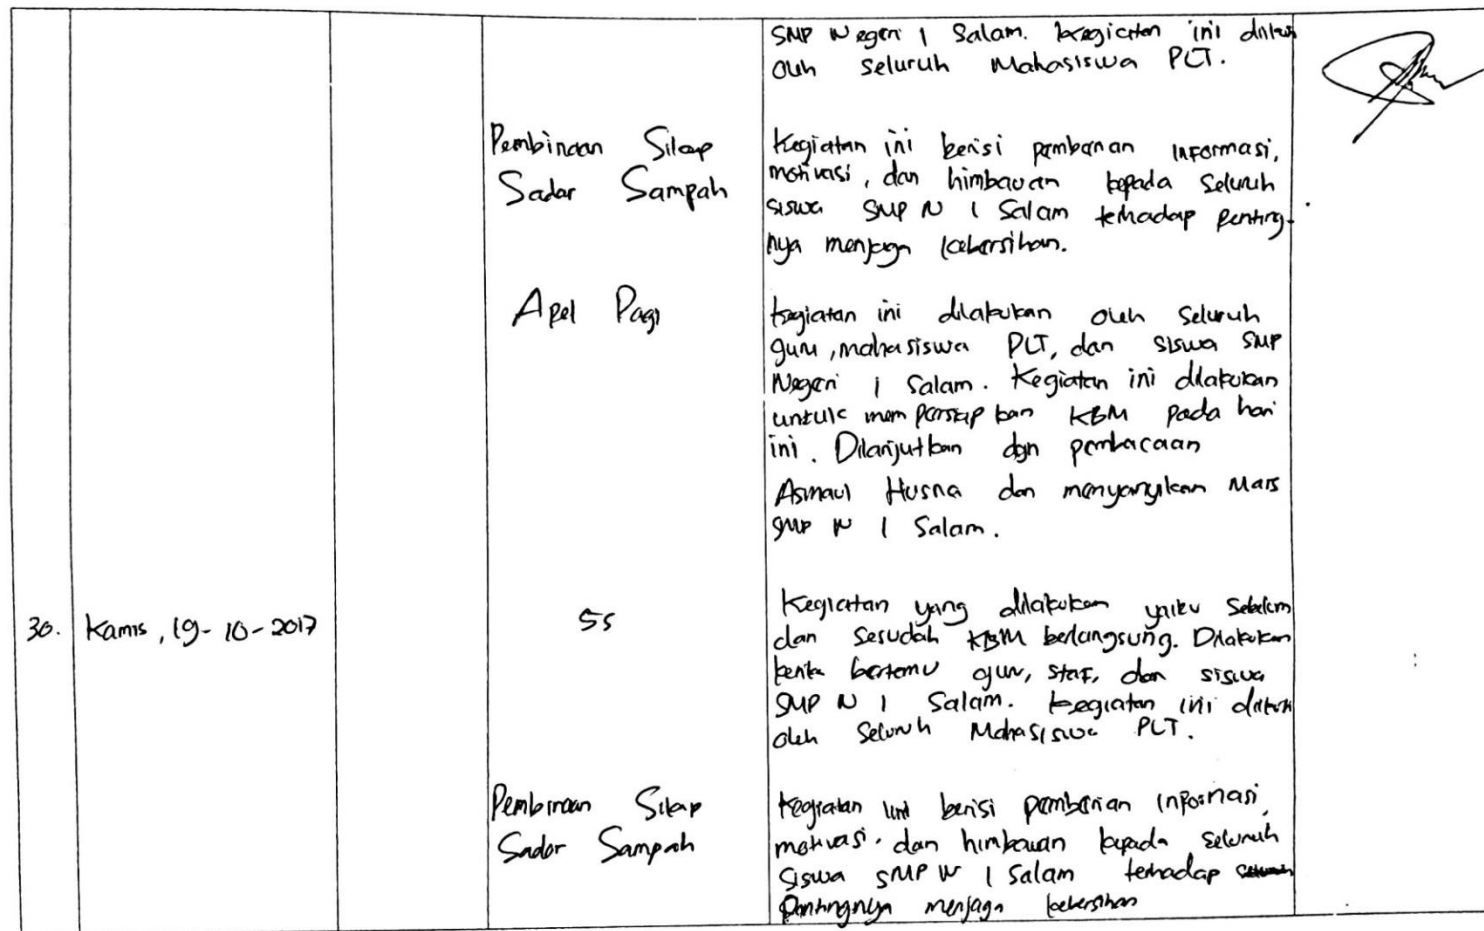 SMP Negeri 1 Salam. kegiatan ini diikuti
oleh seluruh Mahasiswa PLT.
Pembinaan Sikap
Sadar Sampah
Kegiatan ini berisi pemberian informasi,
motivasi, dan himbauan kepada seluruh
siswa SMP N 1 Salam terhadap penting-
nya menjaga kebersihan.
Apel Pagi
kegiatan ini dilakukan oleh seluruh
guru, mahasiswa PLT, dan siswa SMP
Negeri 1 Salam. Kegiatan ini dilakukan
untuk mempersiapkan KBM pada hari
ini. Dilanjutkan dgn pembacaan
Asmaul Husna dan menyanyikan Mars
SMP N 1 Salam.
30. Kamis, 19-10-2017
5S
Kegiatan yang dilakukan yaitu sebelum
dan sesudah KBM berlangsung. Dilakukan
ketika bertemu guru, staf, dan siswa
SMP N 1 Salam. kegiatan ini diikuti
oleh seluruh Mahasiswa PLT.
Pembinaan Sikap
Sadar Sampah
Kegiatan ini berisi pemberian informasi,
motivasi, dan himbauan kepada seluruh
siswa SMP N 1 Salam terhadap
pentingnya menjaga kebersihan